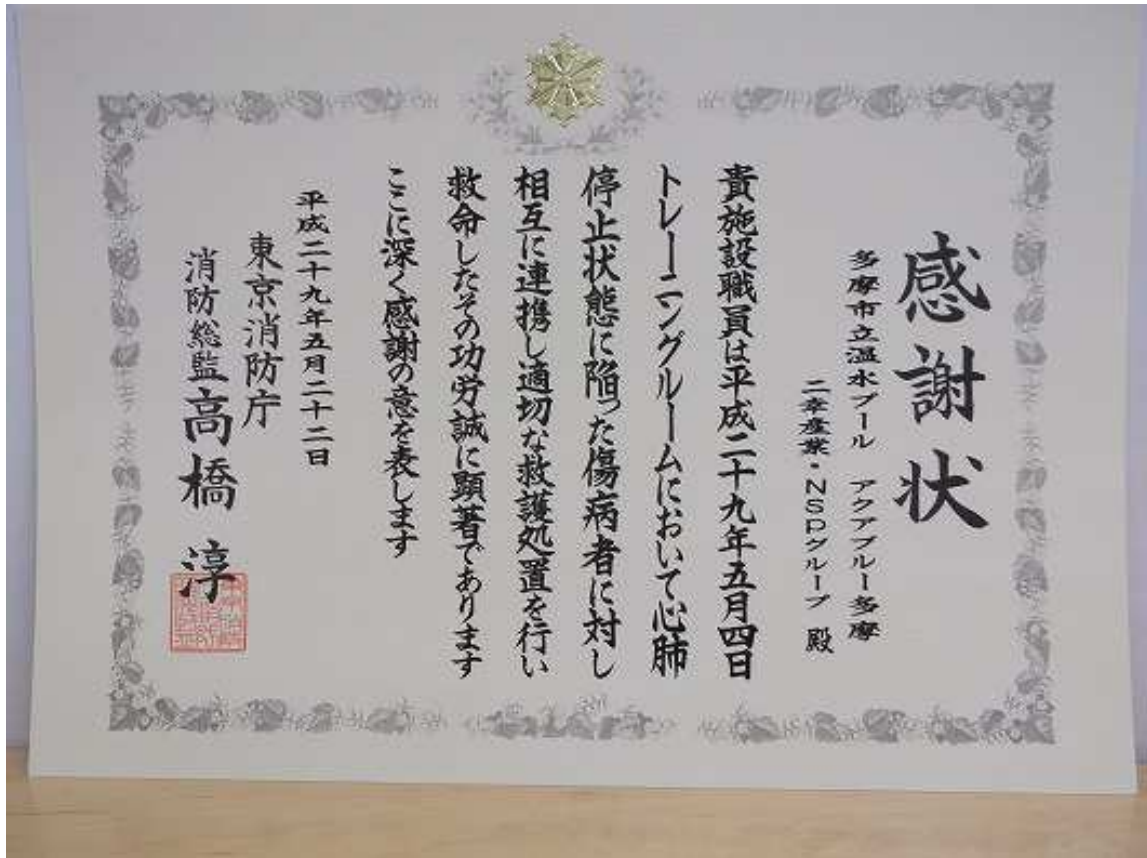 感謝状
多摩市立温水プール アクアブルー多摩
二幸産業・NSPグループ 殿
貴施設職員は平成二十九年五月四日
トレーニングルームにおいて心肺
停止状態に陥った傷病者に対し
相互に連携し適切な救護処置を行い
救命したその功労誠に顕著であります
ここに深く感謝の意を表します
平成二十九年五月二十二日
東京消防庁
消防総監 高橋 淳